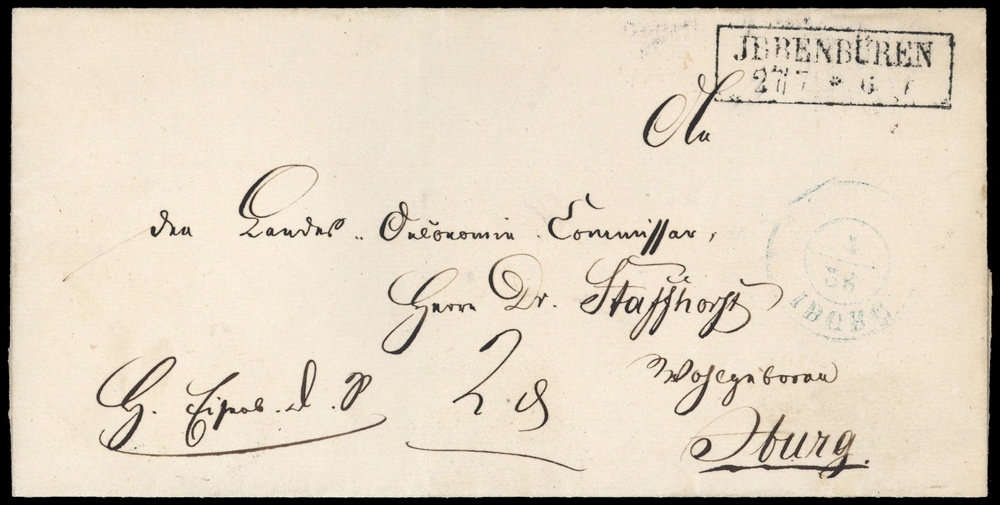 JBBENBÜREN
27/7 * 6-7
An
den Landes-Oeconomie-Commissar,
Herrn Dr. Staffhorst
Wohlgeboren
Iburg.
H.
d. S
2
28
IBURG